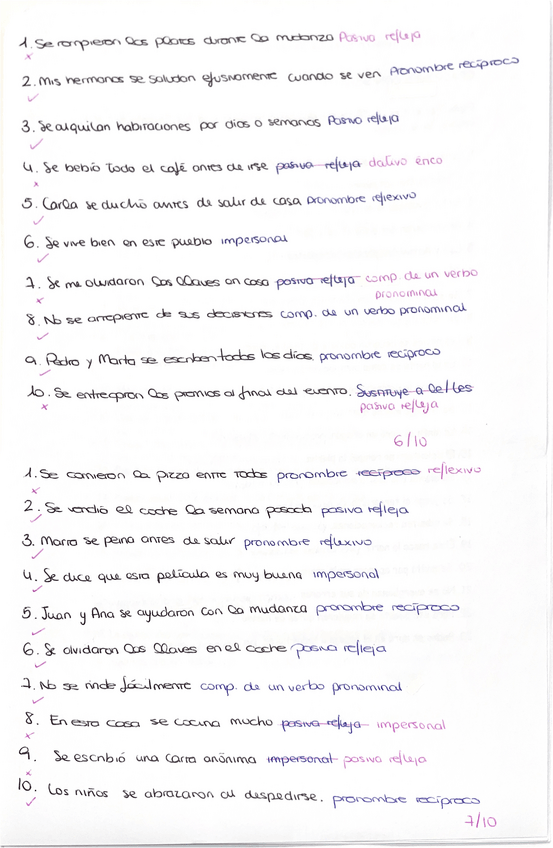 1. Se rompieron los platos durante la mudanza Pasiva refleja
2. Mis hermanos se saludan efusivamente cuando se ven Pronombre recíproco
3. Se alquilan habitaciones por días o semanas Pasiva refleja
4. Se bebió todo el café antes de irse pasiva refleja dativo énco
5. Carla se duchó antes de salir de casa pronombre reflexivo
6. Se vive bien en este pueblo impersonal
7. Se me olvidaron las llaves en casa pasiva refleja comp de un verbo
pronominal
8. No se arrepiente de sus decisiones comp. de un verbo pronominal
9. Pedro y Marta se escriben todos los días pronombre recíproco
10. Se entregaron los premios al final del evento. Sustituye a le/les
pasiva refleja
6/10
1. Se comieron la pizza entre todos pronombre recíproco reflexivo
2. Se vendió el coche la semana pasada pasiva refleja
3. María se peina antes de salir pronombre reflexivo
4. Se dice que esta película es muy buena impersonal
5. Juan y Ana se ayudaron con la mudanza pronombre recíproco
6. Se olvidaron las llaves en el coche pasiva refleja
7. No se rinde fácilmente comp. de un verbo pronominal
8. En esta casa se cocina mucho pasiva refleja impersonal
9. Se escribió una carta anónima impersonal pasiva refleja
10. Los niños se abrazaron al despedirse. pronombre recíproco
7/10